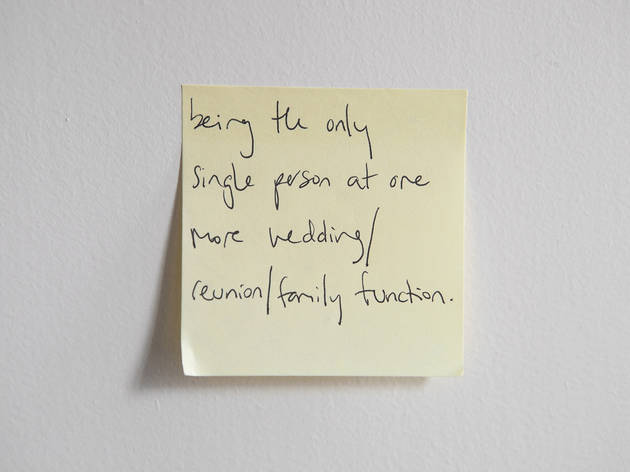 being the only
single person at one
more wedding/
reunion/family function.